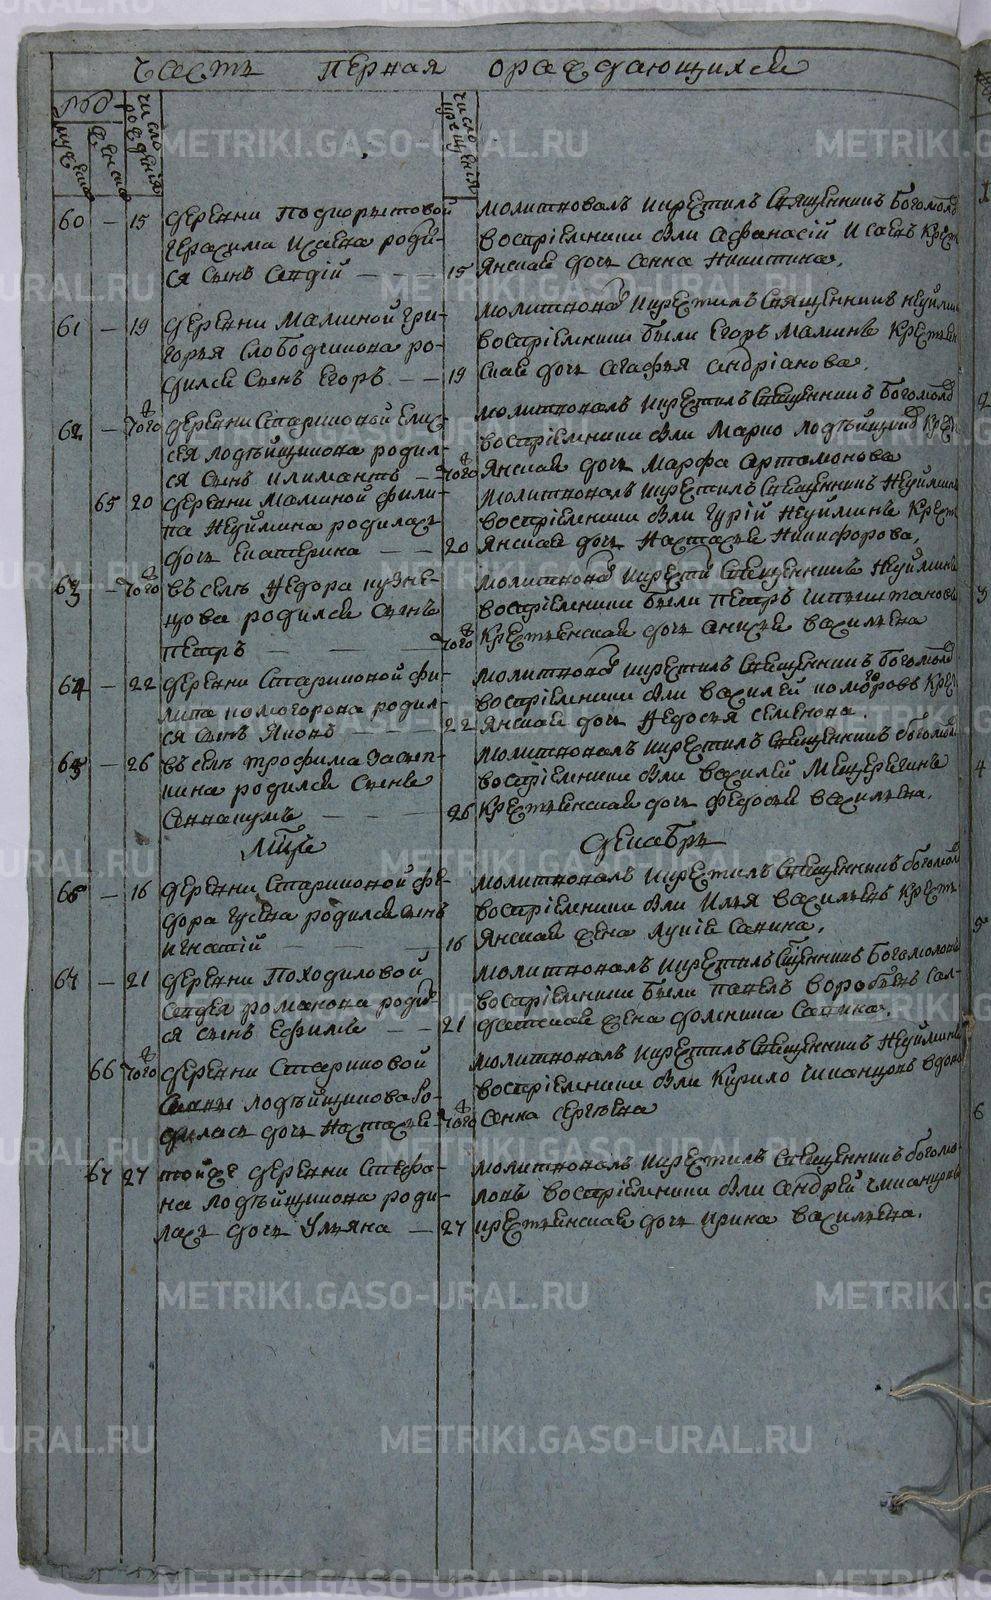 Часть первая о раждающихся
род
мужеска
женска
число рождения
число крещения
60 — 15 деревни Подкорытовой
Герасима Исаева роди-
ся сынъ Сергій — — — 15
молитвовалъ и крестилъ священникъ Богомолов
воспріемники были Афанасій Исаевъ крест
янская дочь Анна Никитина.
61 — 19 деревни Маминой Гри-
горья Слободчикова ро-
дился сынъ Егоръ — — 19
молитвовал и крестилъ священникъ Неуймин
воспріемники были Егоръ Маминъ крестьян
ская дочь Агафья Андріанова.
62 — того ч деревни Стариковой Елис
ея Лодѣйщикова родил-
ся сынъ Климантъ — того ч
молитвовалъ и крестилъ священникъ Богомолов
воспріемники были Марко Лодѣйщиков крест
янская дочь Марфа Артамонова
65 20 деревни Маминой Фили-
па Неуймина родилась
дочь Екатерина — — 20
молитвовалъ и крестилъ священникъ Неуймин
воспріемники были Гурій Неуйминъ крест
янская дочь Настасья Никифорова.
63 — того ч въ селѣ Федора Кузне-
цова родился сынъ
Петръ — — — того ч
молитвовал и крести священникъ Неуймин
воспріемники были Петръ
крестьянская дочь Анисья Васильева
64 — 22 деревни Стариковой Фи-
липа Комогорова родил-
ся сынъ Яковъ — — — 22
молитвовал и крестилъ священникъ Богомолов
воспріемники были Василей Комогоровъ крес
янская дочь Федосья Семенова.
65 — 26 въ селѣ Трофима Засып-
кина родился сынъ
Аннакумъ — — — 26
молитвовалъ и крестилъ священникъ Богомолов
воспріемники были Василей Мещерягинъ
крестьянская дочь Федосья Васильева.
Мцъ Декабрь
66 — 16 деревни Стариковой Фе-
дора Гусева родился сынъ
Игнатій — — — 16
молитвовалъ и крестилъ священникъ Богомолов
воспріемники были Илья Васильевъ крест
янская жена Лукія Савина.
67 — 21 деревни Походиловой
Андрея Романова роди
ся сынъ Ефимъ — — 21
молитвовалъ и крестилъ священникъ Богомоловъ
воспріемники были Павелъ Воробьевъ сал-
датская жена Домника Савина.
66 того ч деревни Стариковой
Лодѣйщикова ро-
дилась дочь Настасья того ч
молитвовалъ и крестилъ священникъ Неуймин
воспріемники были Кирило Чиканцовъ вдова
Анна Сергѣева
67 27 той же деревни Стефа-
на Лодѣйщикова роди-
лась дочь Ульяна — 27
молитвовалъ и крестилъ священникъ Богомо-
ловъ воспріемники были Андрей Чиканцовъ
крестьянская дочь Ирина Васильева.
METRIKI.GASO-URAL.RU